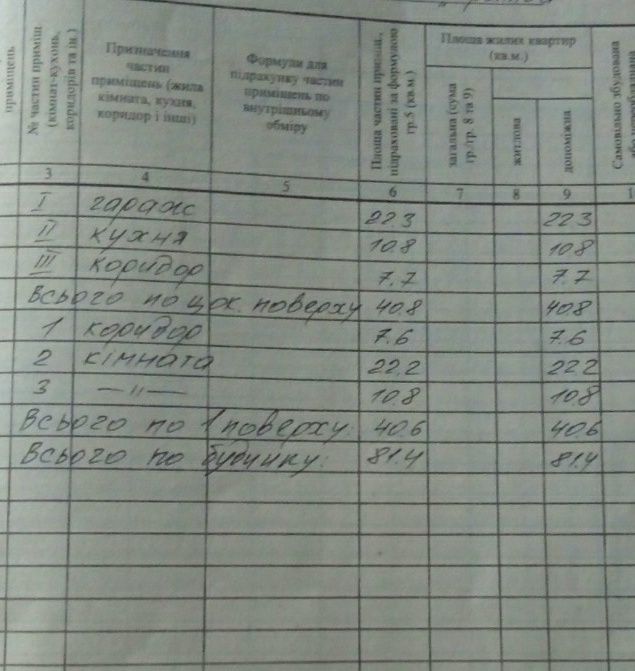 приміщень
№ частин приміщ
(кімнат-кухонь,
коридорів та ін.)
Призначення
частин
приміщень (жила
кімната, кухня,
коридор і інші)
Формули для
підрахунку частин
приміщень по
внутрішньому
обміру
Площа частин приміщ.,
підраховані за формулою
гр.5 (кв.м.)
Площа жилих квартир
(кв.м.)
загальна (сума
гр./гр. 8 та 9)
житлова
допоміжна
Самовільно збудована
3 4 5 6 7 8 9 1
I гараж 22.3 22.3
II кухня 10.8 10.8
III коридор 7.7 7.7
Всього по цок. поверху 40.8 40.8
1 коридор 7.6 7.6
2 кімната 22.2 22.2
3 —"— 10.8 10.8
Всього по 1 поверху: 40.6 40.6
Всього по будинку: 81.4 81.4